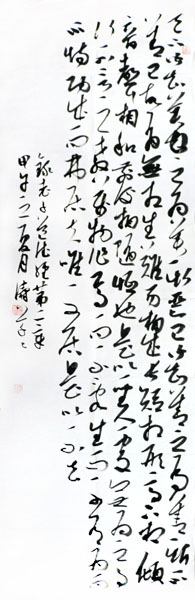 天下皆知美之为美斯恶已皆知善之为善斯不
善已故有無相生难易相成长短相形高下相倾
音聲相和前後相随恒也是以聖人處無为之事
行不言之教万物作焉而不辞生而不有为而
不恃功成而弗居夫唯不居是以不去
錄老子道德經第二章
甲午之夏月濤